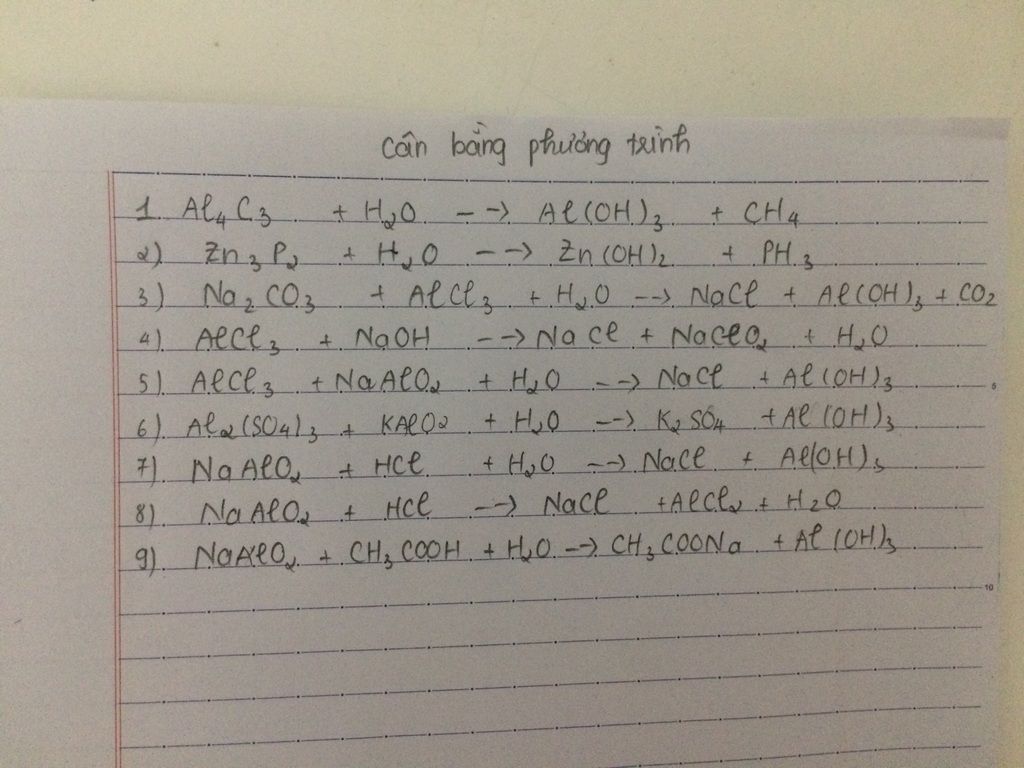 Cân bằng phương trình
1 Al₄C₃ + H₂O --> Al(OH)₃ + CH₄
2) Zn₃P₂ + H₂O --> Zn(OH)₂ + PH₃
3) Na₂CO₃ + AlCl₃ + H₂O --> NaCl + Al(OH)₃ + CO₂
4) AlCl₃ + NaOH --> NaCl + NaClO₂ + H₂O
5) AlCl₃ + NaAlO₂ + H₂O --> NaCl + Al(OH)₃
5
6) Al₂(SO₄)₃ + KAlO₂ + H₂O --> K₂SO₄ + Al(OH)₃
7) NaAlO₂ + HCl + H₂O --> NaCl + Al(OH)₃
8) NaAlO₂ + HCl --> NaCl + AlCl₂ + H₂O
9) NaAlO₂ + CH₃COOH + H₂O --> CH₃COONa + Al(OH)₃
10